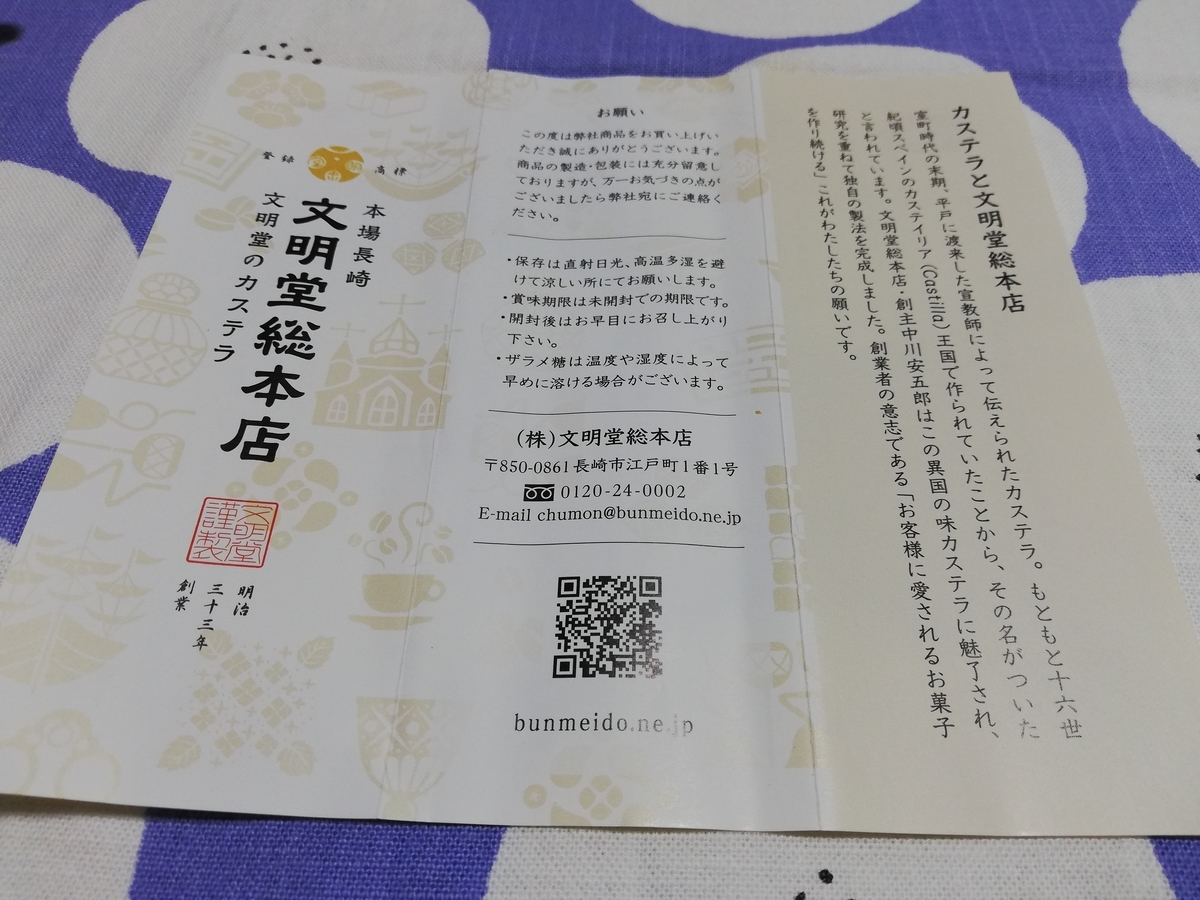 カステラと文明堂総本店
室町時代の末期、平戸に渡来した宣教師によって伝えられたカステラ。もともと十六世
紀頃スペインのカステイリア(Castilla)王国で作られていたことから、その名がついた
と言われています。文明堂総本店・創主中川安五郎はこの異国の味カステラに魅了され、
研究を重ねて独自の製法を完成しました。創業者の意志である「お客様に愛されるお菓子
を作り続ける」これがわたしたちの願いです。
お願い
この度は弊社商品をお買い上げい
ただき誠にありがとうございます。
商品の製造・包装には充分留意し
ておりますが、万一お気づきの点が
ございましたら弊社宛にご連絡く
ださい。
・保存は直射日光、高温多湿を避
けて涼しい所にてお願いします。
・賞味期限は未開封での期限です。
・開封後はお早目にお召し上がり
下さい。
・ザラメ糖は温度や湿度によって
早めに溶ける場合がございます。
(株)文明堂総本店
〒850-0861長崎市江戸町1番1号
0120-24-0002
E-mail chumon@bunmeido.ne.jp
bunmeido.ne.jp
登録
商標
本場長崎
文明堂総本店
文明堂のカステラ
文明堂
謹製
明治
三十三年
創業